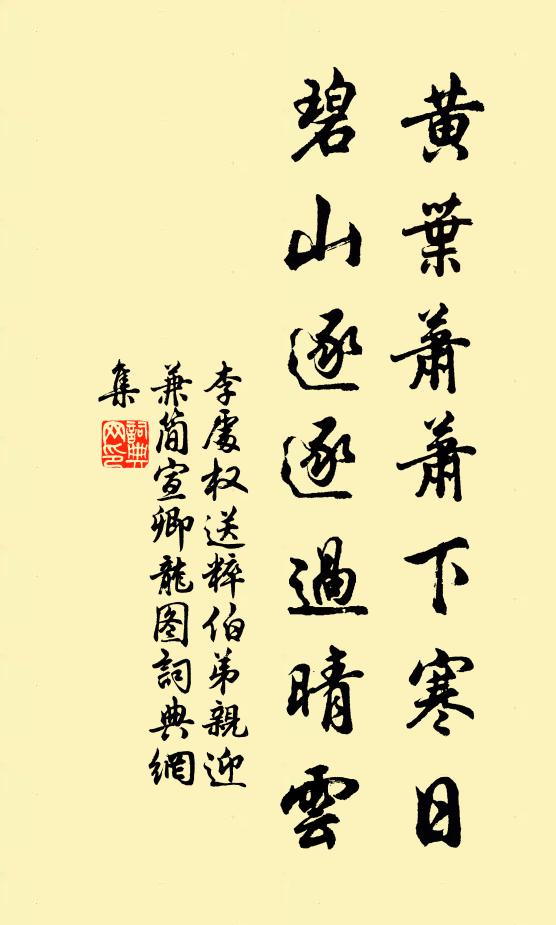 黃葉蕭蕭下寒日
碧山逐逐過晴雲
李處权送粹伯弟親迎
兼简宣卿龍图詞典網
集
詞典
网印